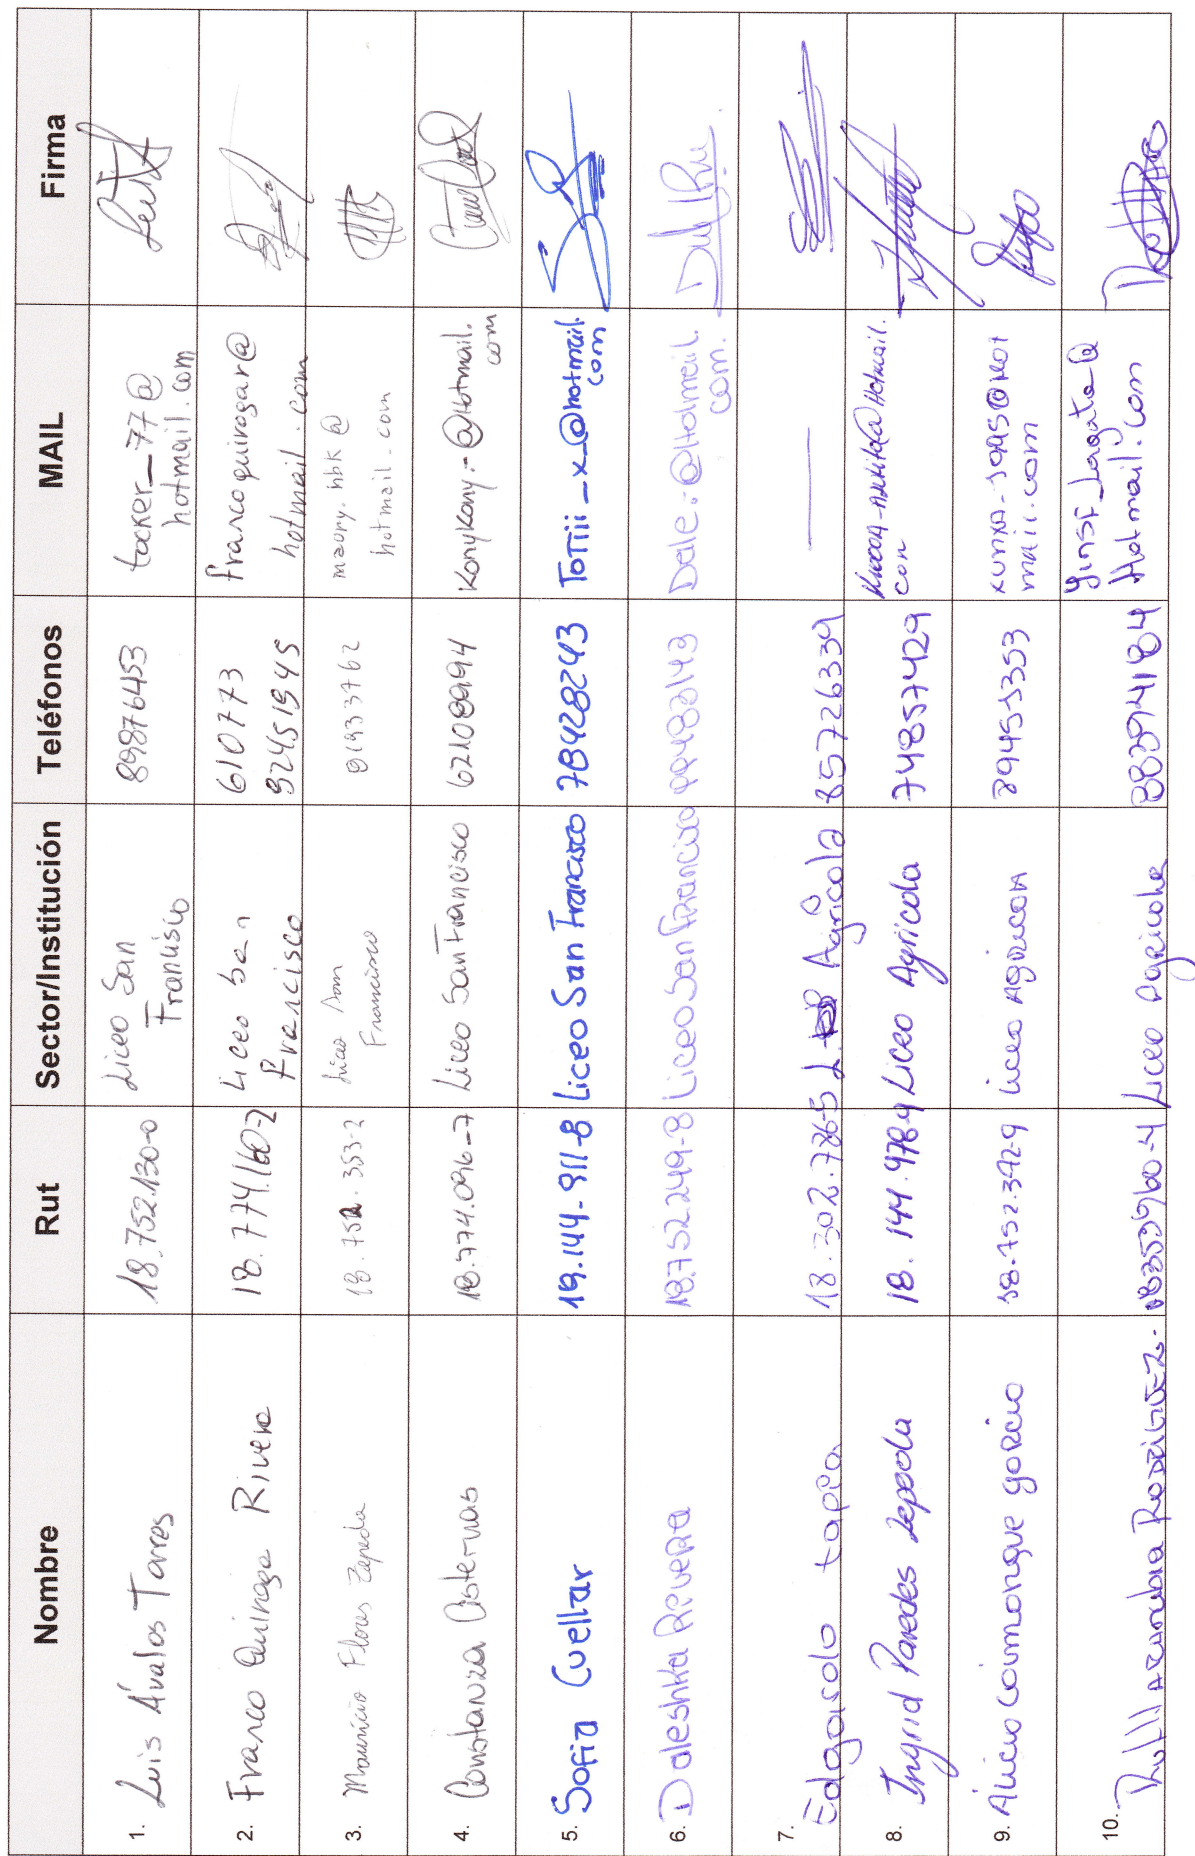 Nombre Rut Sector/Institución Teléfonos MAIL Firma
1. Luis Ávalos Torres 18.752.130-0 Liceo San 89876453 tocker_77@
Francisco hotmail.com
2. Franco Quiroga Rivera 18.774.160-2 Liceo San 610773 francoquirogar@
Francisco 92451945 hotmail.com
3. Mauricio Flores Zepeda 18.752.353-2 Liceo San 81933762 maony.hbk@
Francisco hotmail.com
4. Constanza Cisternas 18.774.096-7 Liceo San Francisco 62108994 Konykony-@hotmail.
com
5. Sofia Cuellar 19.144-911-8 Liceo San Francisco 78428243 Totiii_x_@hotmail.
com
6. Daleshka Rivera 18.752.249-8 Liceo San Francisco 99482143 Dale:@Hotmail.
com.
7. Edgardo tapia 18.302.786-5 Agrícola 85726339
8. Ingrid Paredes Zepeda 18.144.978-4 Liceo Agricola 74857429 @Hotmail.
com
9. 18.752.392-9 Liceo Agricola
mail.com
10. 18359960-4 Liceo Agricola 88394184
Hotmail.com